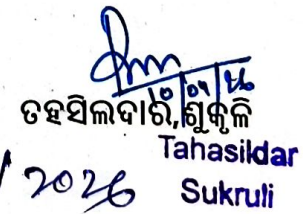 ତହସିଲଦାର, ଶୁକୃଳି
Tahasildar
/ 2026 Sukruli